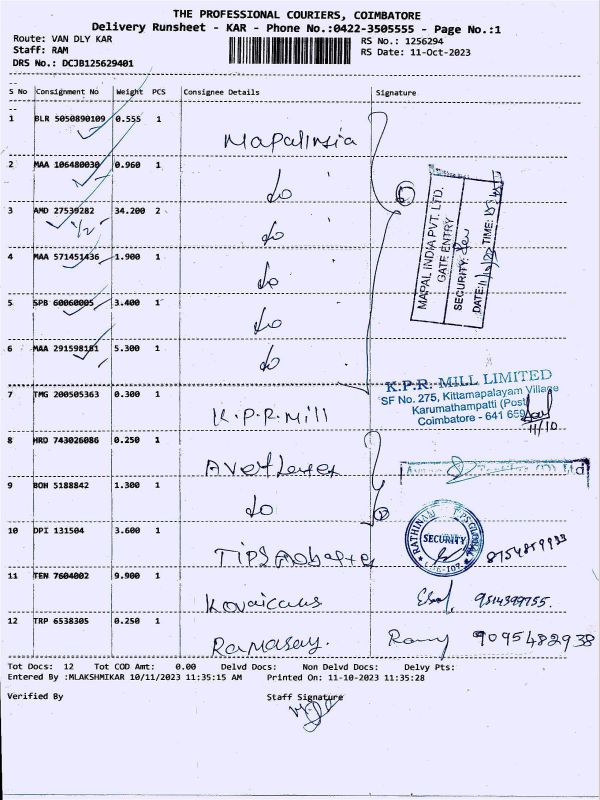 THE PROFESSIONAL COURIERS, COIMBATORE
Delivery Runsheet - KAR - Phone No.:0422-3505555 - Page No.:1
Route: VAN DLY KAR RS No.: 1256294
Staff: RAM RS Date: 11-Oct-2023
DRS No.: DCJB125629401
S No Consignment No Weight PCS Consignee Details Signature
1 BLR 5050890109 0.555 1 Mapal India
2 MAA 106480030 0.960 1 do
3 AMD 27539282 34.200 2 do
1/2
4 MAA 571451436 1.900 1 do
5 SPB 60060005 3.400 1 do
6 MAA 291598181 5.300 1 do
MAPAL INDIA PVT. LTD.
GATE ENTRY
SECURITY:
DATE: 11/10/23 TIME:
7 TMG 200505363 0.300 1 K.P.R. Mill
K.P.R. MILL LIMITED
SF No. 275, Kittamapalayam Village
Karumathampatti (Post)
Coimbatore - 641 659
11/10
8 HRO 743026086 0.250 1
9 BOM 5188842 1.300 1 do
10 DPI 131504 3.600 1
SECURITY
8754859933
11 TEN 7604002 9.900 1 9514399755.
12 TRP 6538305 0.250 1 Ramasay. Ramy 9095482938
Tot Docs: 12 Tot COD Amt: 0.00 Delvd Docs: Non Delvd Docs: Delvy Pts:
Entered By :MLAKSHMIKAR 10/11/2023 11:35:15 AM Printed On: 11-10-2023 11:35:28
Verified By Staff Signature